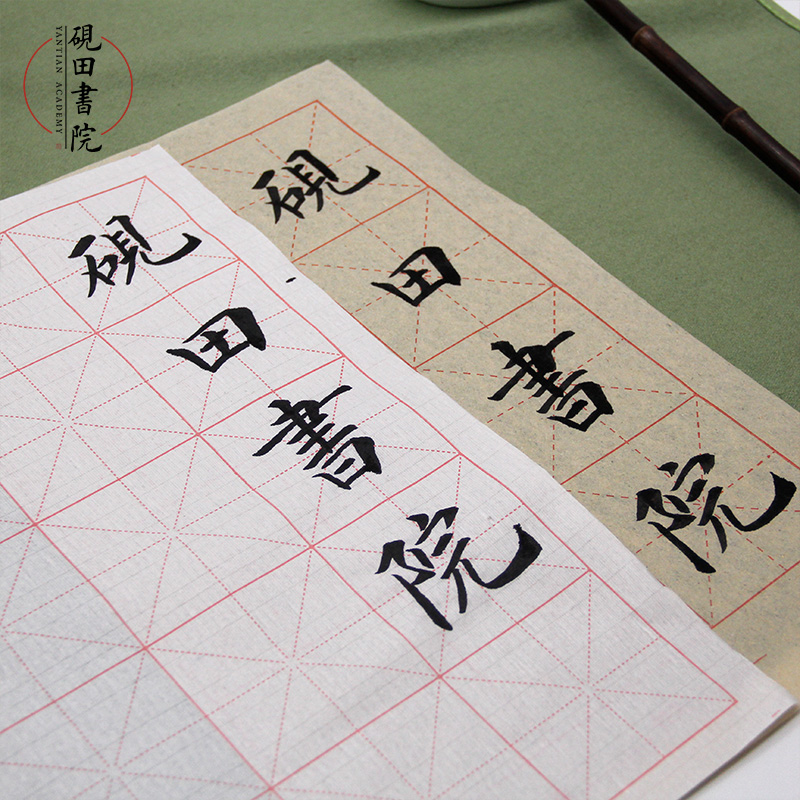 硯田書院
YANTIAN ACADEMY
硯田書院
硯田書院